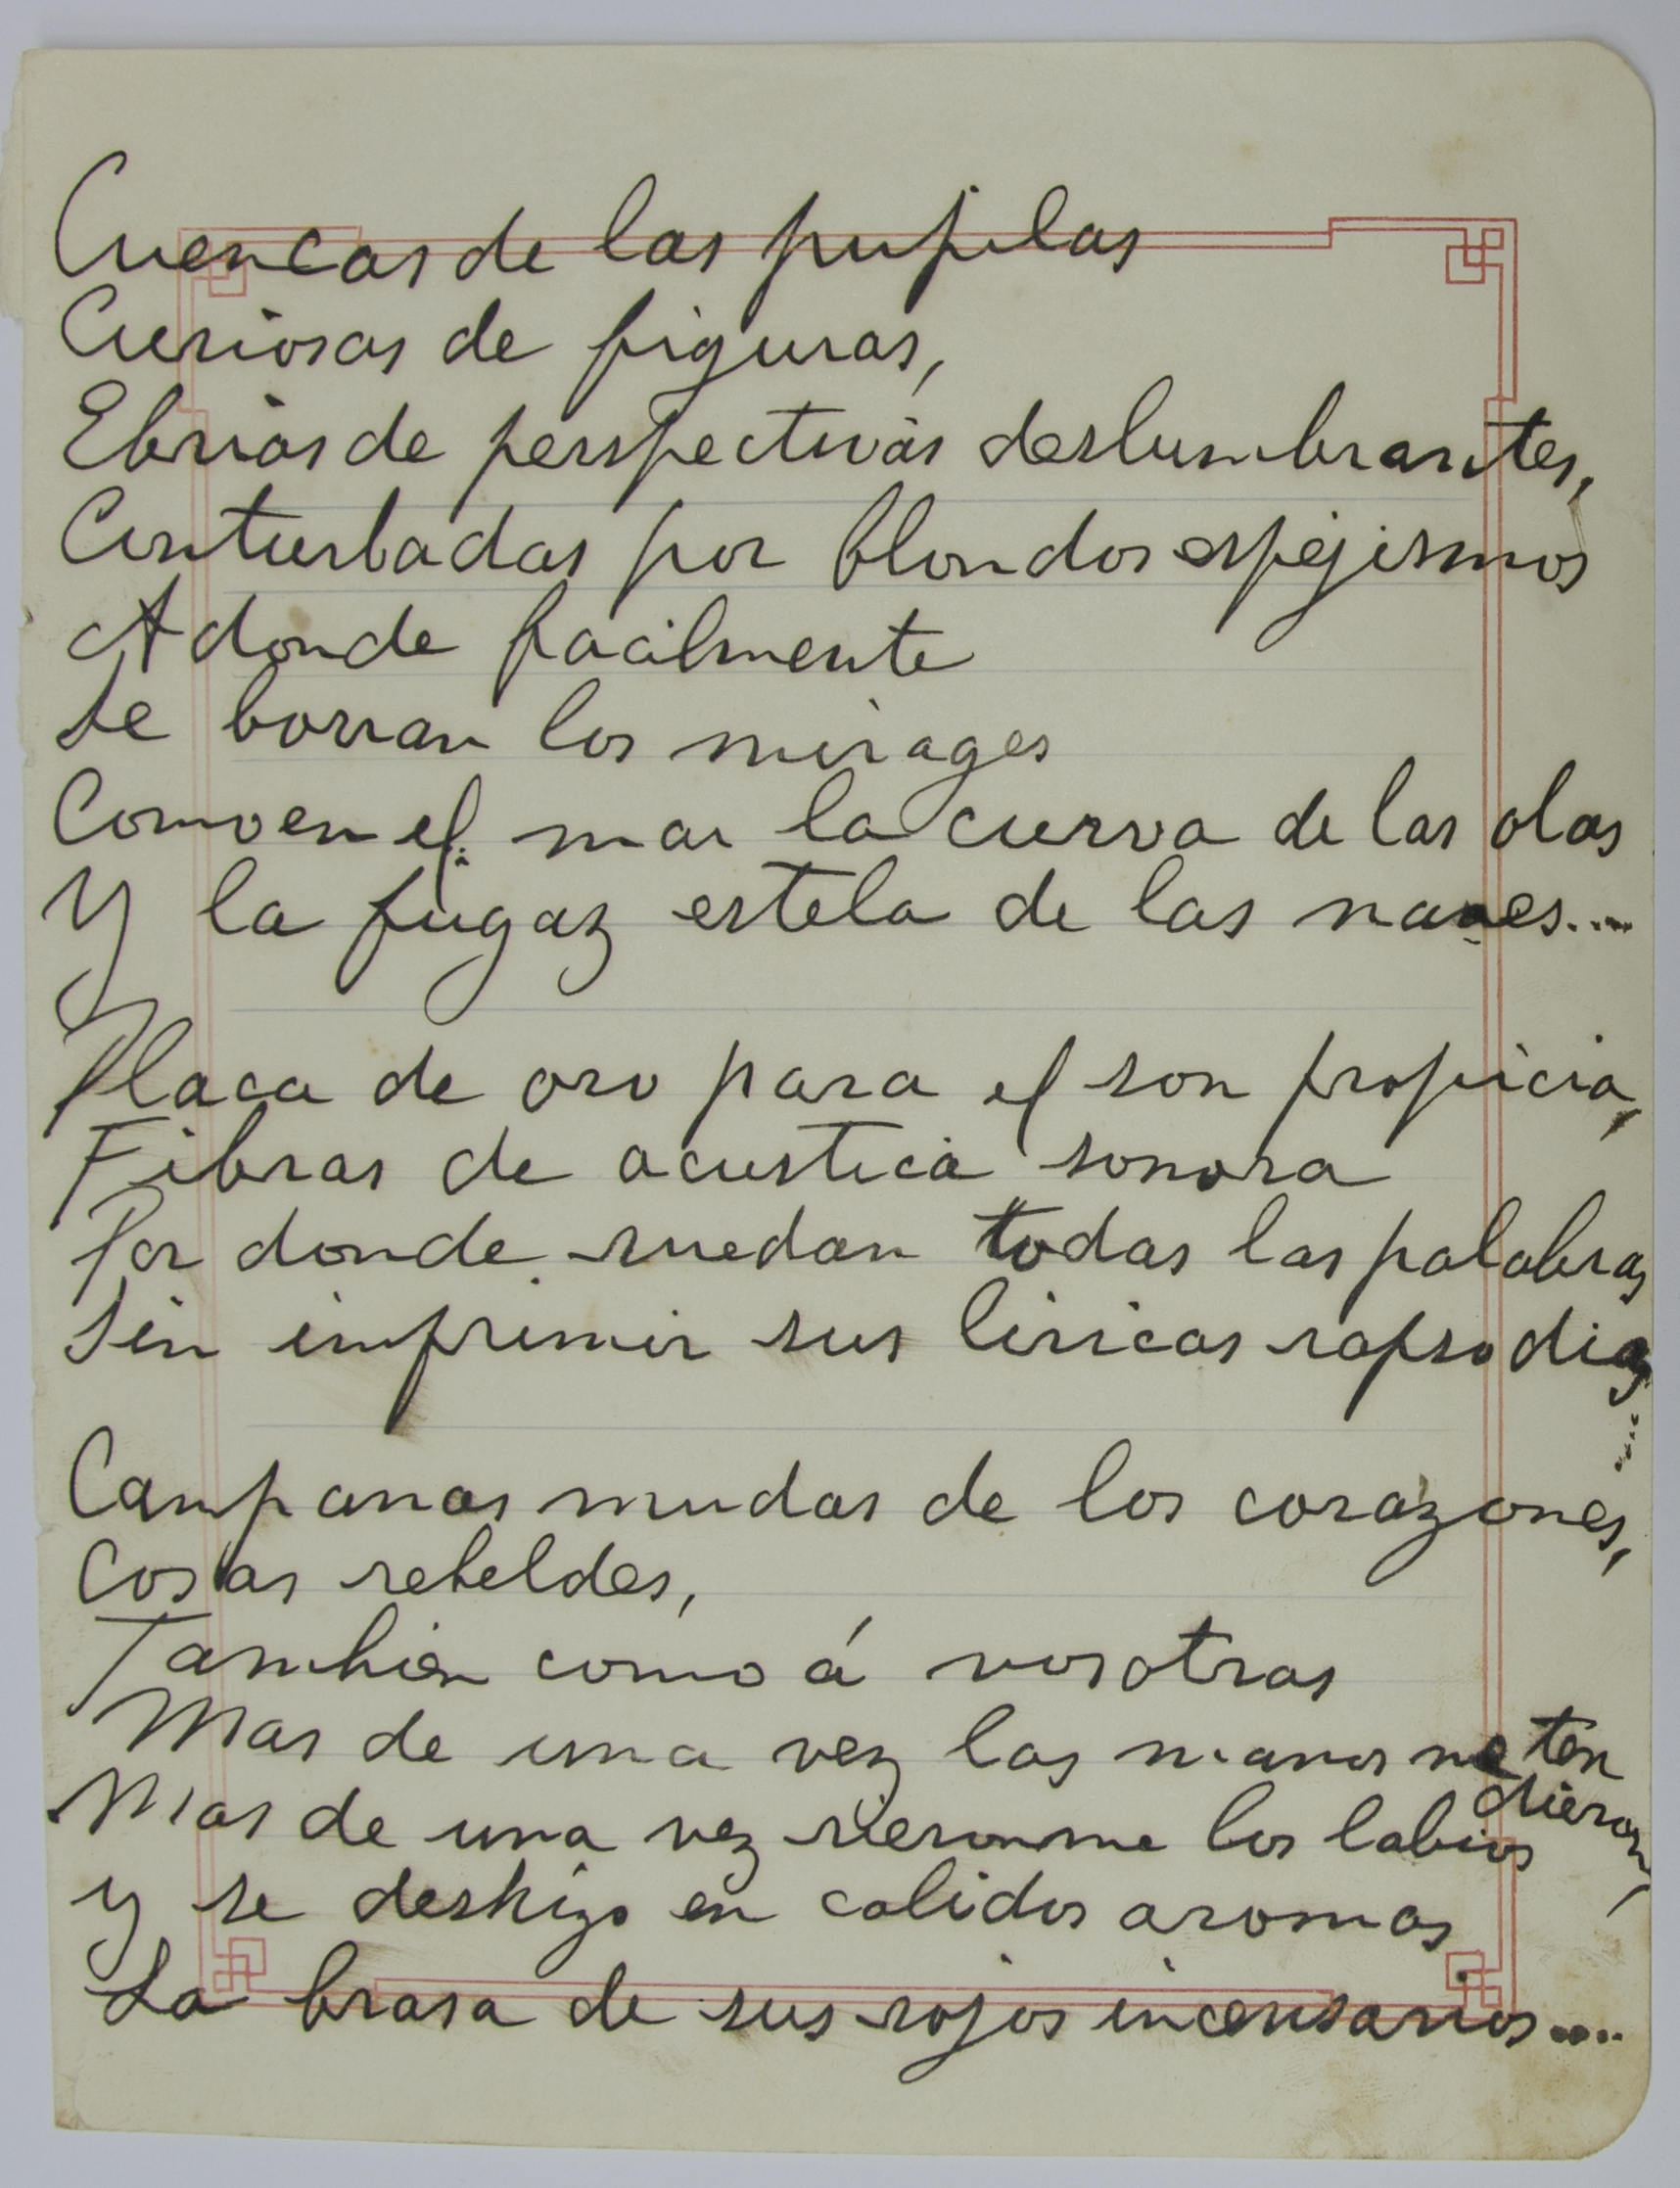 Cuencas de las pupilas
Curiosas de figuras,
Ebrias de perspectivas deslumbrantes,
Conturbadas por blondos espejismos
A donde facilmente
Se borran los mirages
Como en el mar la curva de las olas
Y la fugaz estela de las naves....
Placa de oro para el son propicia,
Fibras de acustica sonora
Por donde ruedan todas las palabras
Sin imprimir sus liricas rapsodias....
Campanas mudas de los corazones,
Cosas rebeldes,
Tambien como á vosotras
Mas de una vez las manos me ten
dieron,
Mas de una vez rieronme los labios
y se deshizo en calidos aromas
La brasa de sus rojos incensarios....